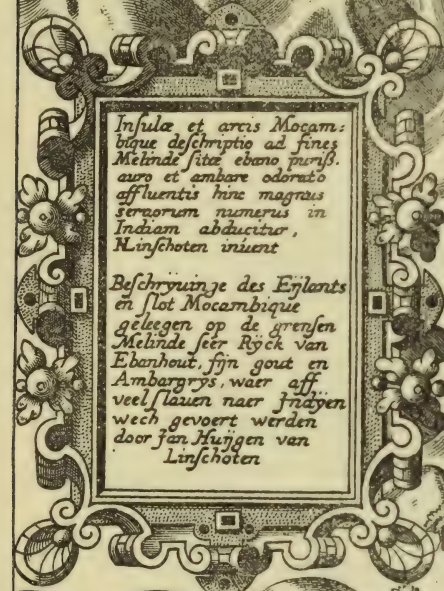 Insulæ et arcis Mocam:
bique deſchriptio ad fines
Melinde ſitæ ebano puriß.
auro et ambare odorato
affluentis hinc magnus
seruorum numerus in
Indiam abducitur,
H. Linſchoten inũent
Beſchryuinge des Eÿlants
en ſlot Mocambique
geleegen op de grenſen
Melinde ſeer Rÿck van
Ebanhout, fijn gout en
Ambargrÿs, waer aff
veel ſlauen naer Jndÿen
wech gevoert werden
door Jan Huÿgen van
Linſchoten